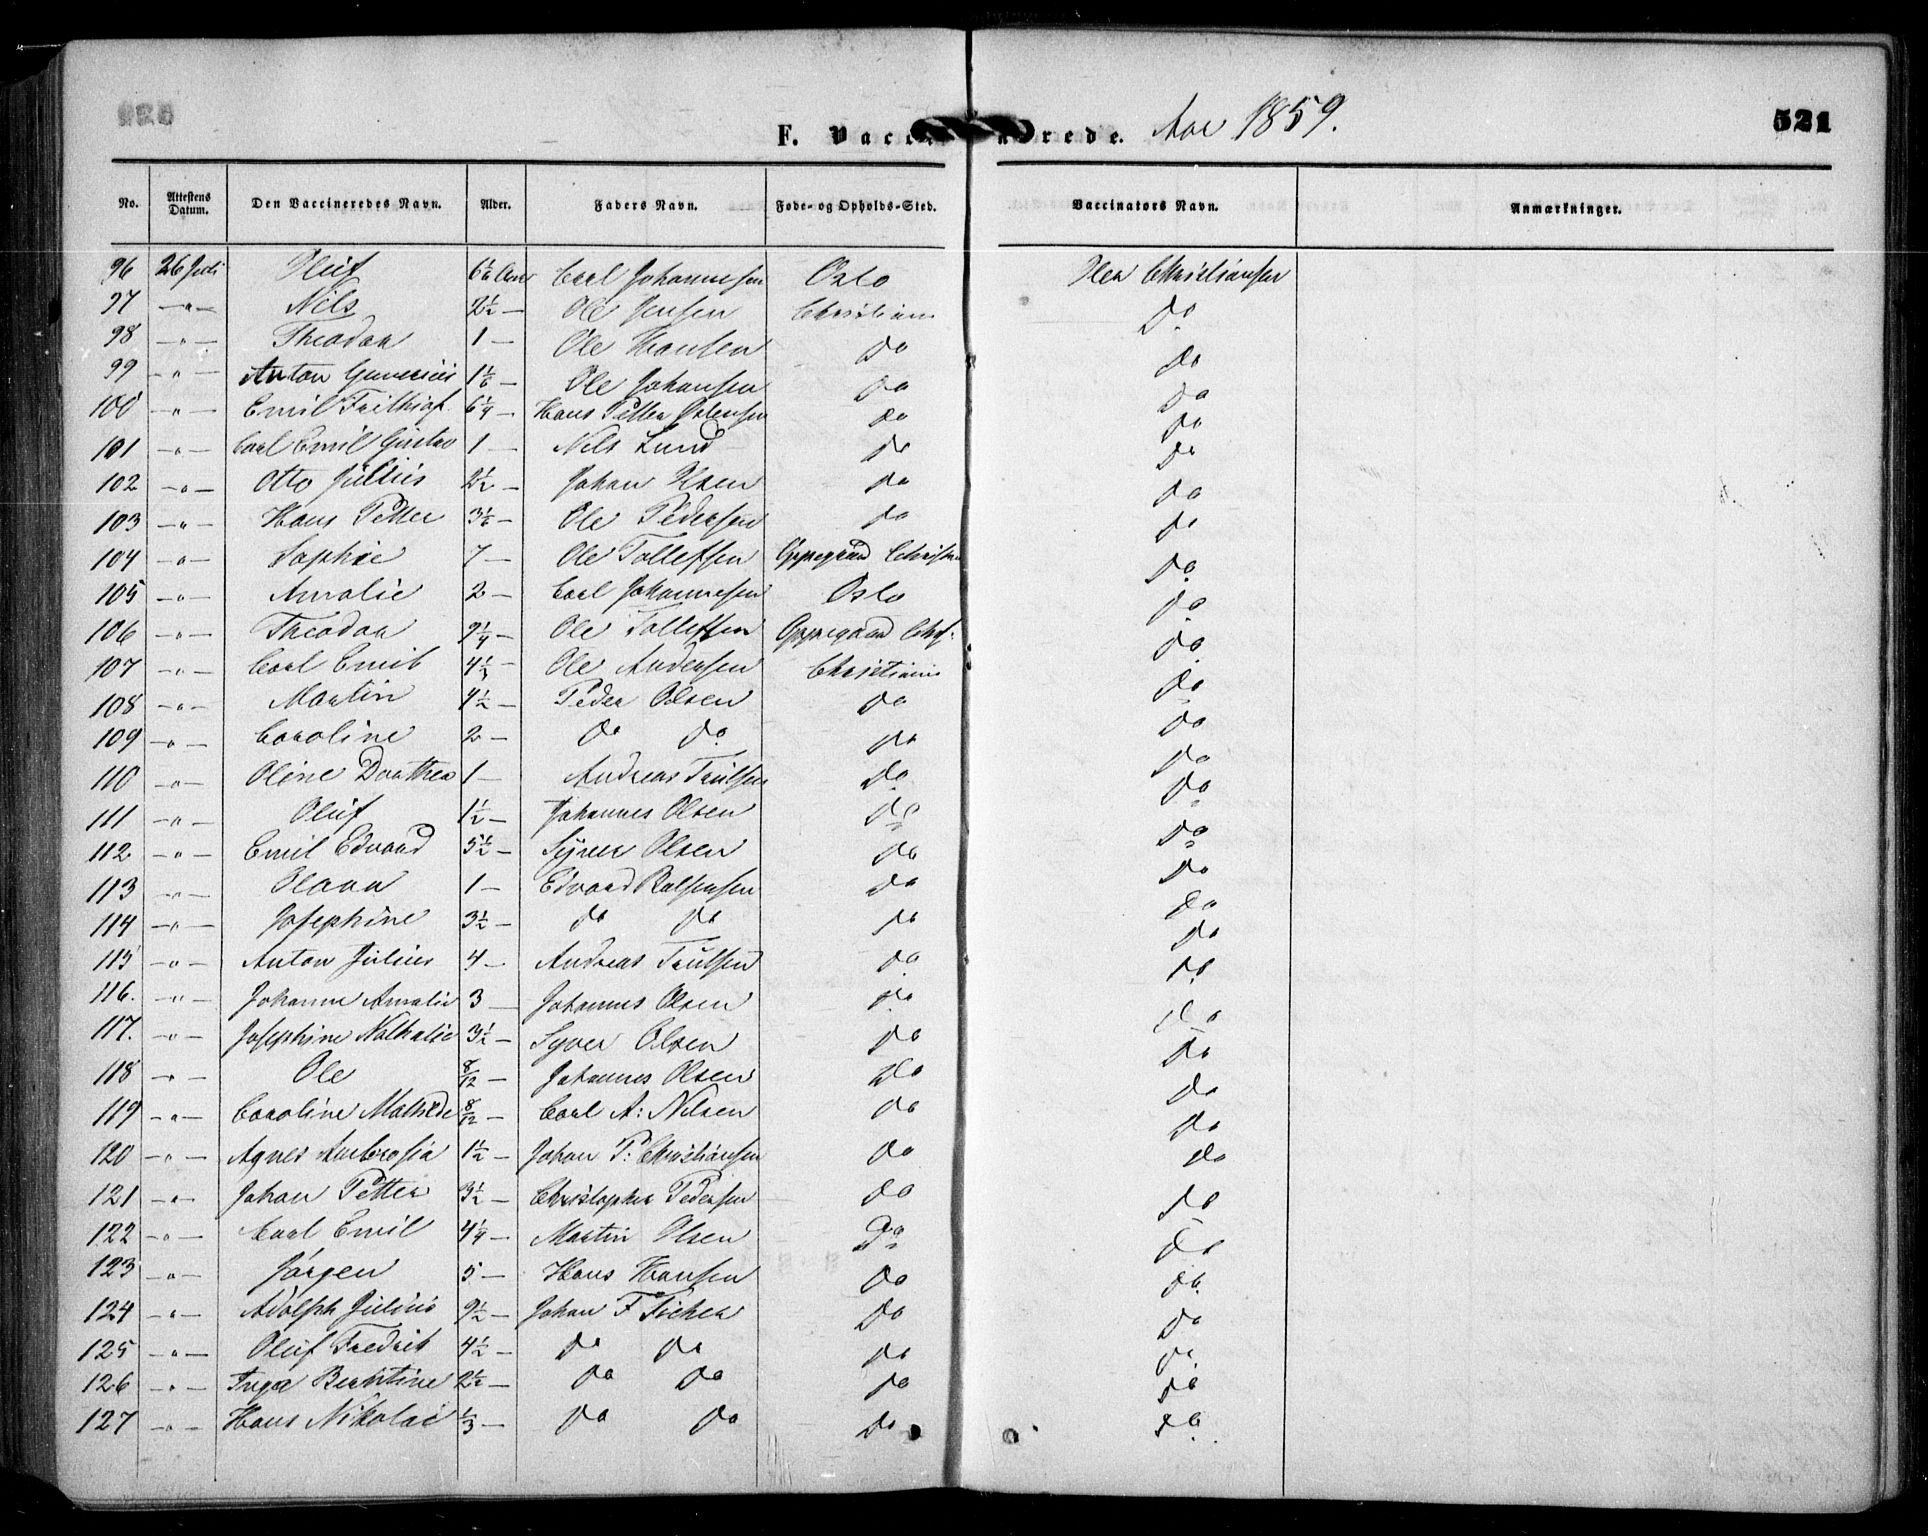 F. Vacc nerede. Aar 1859.
521
No. Attestens Datum. Den Vaccineredes Navn. Alder. Faders Navn. Føde- og Opholds-Sted. Vaccinators Navn. Anmærkninger.
96 26 Juli Oluf 6 1/6 Aar Carl Johannesen Oslo Christiansen
97 —"— Nils 2 1/2 — Ole Jensen Christiania Do
98 —"— Theodor 1 — Ole Hansen Do Do
99 —"— Anton Gunerius 1 1/6 — Ole Johansen Do Do
100 —"— Emil Frithiof 6 1/4 — Hans Petter Do Do
101 —"— Carl Emil Gustav 1 — Nils Lund Do Do
102 —"— Otto Julius 2 1/2 — Johan Do Do
103 —"— Hans Petter 3 1/2 — Ole Pedersen Do Do
104 —"— Sophie 7 — Ole Tollefsen Oppegaard Christian Do
105 —"— Amalie 2 — Carl Johannesen Oslo Do
106 —"— Theodor 9 1/4 — Ole Tollefsen Oppegaard Chr. Do
107 —"— Carl Emil 4 1/3 — Ole Andersen Christiania Do
108 —"— Martin 4 1/2 — Peder Olsen Do Do
109 —"— Caroline 2 — Do Do Do Do
110 —"— Oline Dorthea 1 — Andreas Trulsen Do Do
111 —"— Oluf 1 1/2 — Johannes Olsen Do Do
112 —"— Emil Edvard 5 1/2 — Syver Olsen Do Do
113 —"— 1 — Edvard Do Do
114 —"— Josephine 3 1/2 — Do Do Do Do
115 —"— Anton Julius 4 — Andreas Trulsen Do Do
116. —"— Johanne Amalie 3 — Johannes Olsen Do Do
117. —"— Josephine Nathalia 3 1/2 — Syver Olsen Do Do
118 —"— Ole 8/12 — Johannes Olsen Do Do
119 —"— Caroline Mathilde 8/12 — Carl A: Nilsen Do Do
120 —"— Agnes Ambrosia 1 1/2 — Johan P: Christiansen Do Do
121 —"— Johan Petter 3 1/2 — Christopher Pedersen Do Do
122 —"— Carl Emil 4 1/4 — Martin Olsen Do Do
123 —"— Jørgen 5 — Hans Hansen Do Do
124 —"— Adolph Julius 9 1/2 — Johan F Do Do
125 —"— Oluf Fredrik 4 1/2 — Do Do Do Do
126 —"— Inger Berntine 2 1/2 — Do Do Do Do
127 —"— Hans Nikolai 1/3 — Do Do Do Do